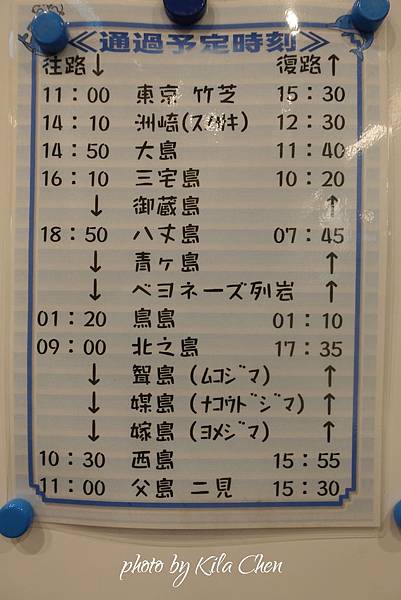 ≪通過予定時刻≫
往路↓ 復路↑
11:00 東京 竹芝 15:30
14:10 洲崎(スノサキ) 12:30
14:50 大島 11:40
16:10 三宅島 10:20
↓ 御蔵島 ↑
18:50 八丈島 07:45
↓ 青ヶ島 ↑
↓ ベヨネーズ列岩 ↑
01:20 鳥島 01:10
09:00 北之島 17:35
↓ 聟島(ムコジマ) ↑
↓ 媒島(ナコウドジマ) ↑
↓ 嫁島(ヨメジマ) ↑
10:30 西島 15:55
11:00 父島 二見 15:30
photo by Kila Chen